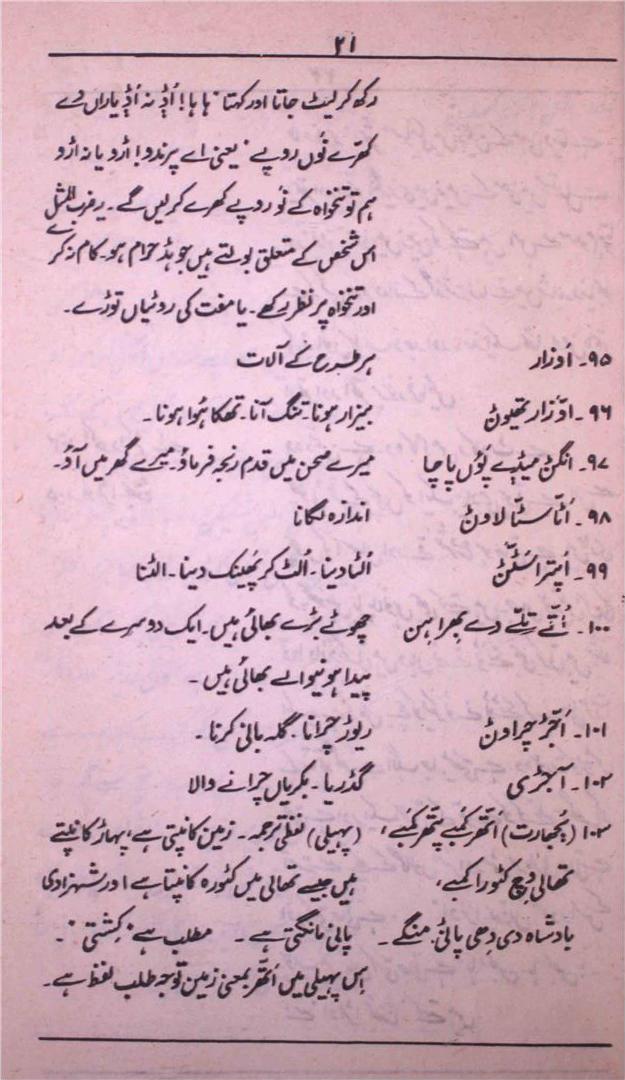 ۲۱
رکھ کر لیٹ جاتا اور کہتا "ہا ہا! اُڈِ نہ اُڈِ یاراں دے
کھرے نوں روپے" یعنی اے پرندو! اڑو یا نہ اڑو
ہم تو تنخواہ کے نَو روپے کھرے کر لیں گے۔ یہ ضرب المثل
اس شخص کے متعلق بولتے ہیں جو ہڈ حرام ہو۔ کام نہ کرے
اور تنخواہ پر نظر رکھے۔ یا مفت کی روٹیاں توڑے۔
۹۵۔ اَوزار ہر طرح کے آلات
۹۶۔ اوَزار تھیوݨ بیزار ہونا۔ تنگ آنا۔ تھکا ہُوا ہونا۔
۹۷۔ انگݨ میݙے پوُل پا چا میرے صحن میں قدم رنجہ فرماؤ۔ میرے گھر میں آؤ۔
۹۸۔ اُٹا سٹا لاوݨ اندازہ لگانا
۹۹۔ اُپتر اسُٹّݨ اُلٹا دینا۔ اُلٹ کر پھینک دینا۔ الٹنا
۱۰۰۔ اُتّے تِلّے دے بھرا ہِن چھوٹے بڑے بھائی ہیں۔ ایک دوسرے کے بعد
پیدا ہونیوالے بھائی ہیں۔
۱۰۱۔ اَجّڑ چراوݨ ریوڑ چرانا۔ گلہ بانی کرنا۔
۱۰۲۔ آجڑی گڈریا۔ بکریاں چرانے والا
۱۰۳ (بُجھارت) اُتھّر کمبے پتھّر کمبے، (پہیلی) لفظی ترجمہ۔ زمین کانپتی ہے، پہاڑ کانپتے
تھالی وِچ کٹورا کمبے، ہیں جیسے تھالی میں کٹورہ کانپتا ہے اور شہزادی
بادشاہ دی دِھی پاݨی منگے۔ پانی مانگتی ہے۔ مطلب ہے "کِشتی"۔
اِس پہیلی میں اُتھّر بمعنی زمین توجہ طلب لفظ ہے۔